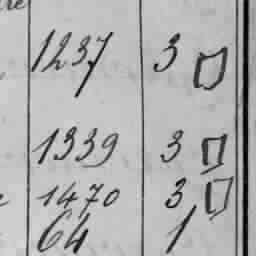 1237 3 □
1339 3 □
1470 3 □
64 1